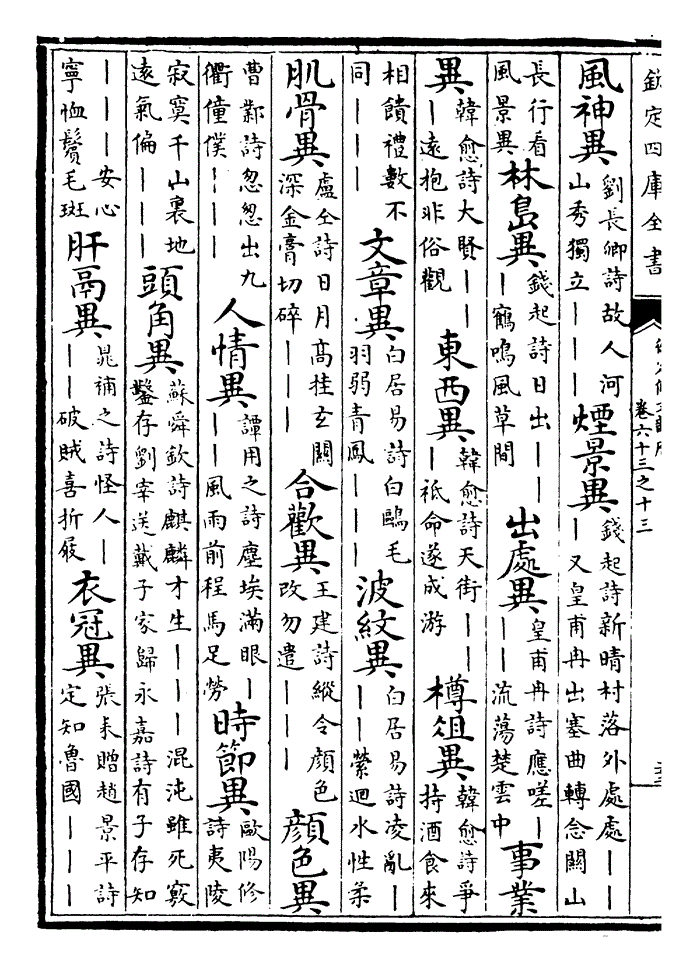 欽定四庫全書
卷六十三之十三
風神異劉長卿詩故人河山秀獨立｜｜｜煙景異錢起詩新晴村落外處處｜｜｜又皇甫冉出塞曲轉念關山
長行看風景異林島異錢起詩日出｜｜｜鶴鳴風草間出處異皇甫冉詩應嗟｜｜｜流蕩楚雲中事業
異韓愈詩大賢｜｜｜遠抱非俗觀東西異韓愈詩天街｜｜｜祗命遂成游樽俎異韓愈詩爭持酒食來
相饋禮數不同｜｜｜文章異白居易詩白鷗毛羽弱青鳳｜｜｜波紋異白居易詩凌亂｜｜｜縈迴水性柔
肌骨異盧仝詩日月高挂玄關深金膏切碎｜｜｜合歡異王建詩縱令顔色改勿遣｜｜｜顔色異
曹鄴詩怱怱出九衢僮僕｜｜｜人情異譚用之詩塵埃滿眼｜｜｜風雨前程馬足勞時節異歐陽修詩夷陵
寂寞千山裏地遠氣偏｜｜｜頭角異蘇舜欽詩麒麟才生｜｜｜混沌雖死竅鑿存劉宰送戴子家歸永嘉詩有子存知
｜｜｜｜安心寧恤鬢毛斑肝鬲異晁補之詩怪人｜｜｜破賊喜折屐衣冠異張耒贈趙景平詩定知魯國｜｜｜